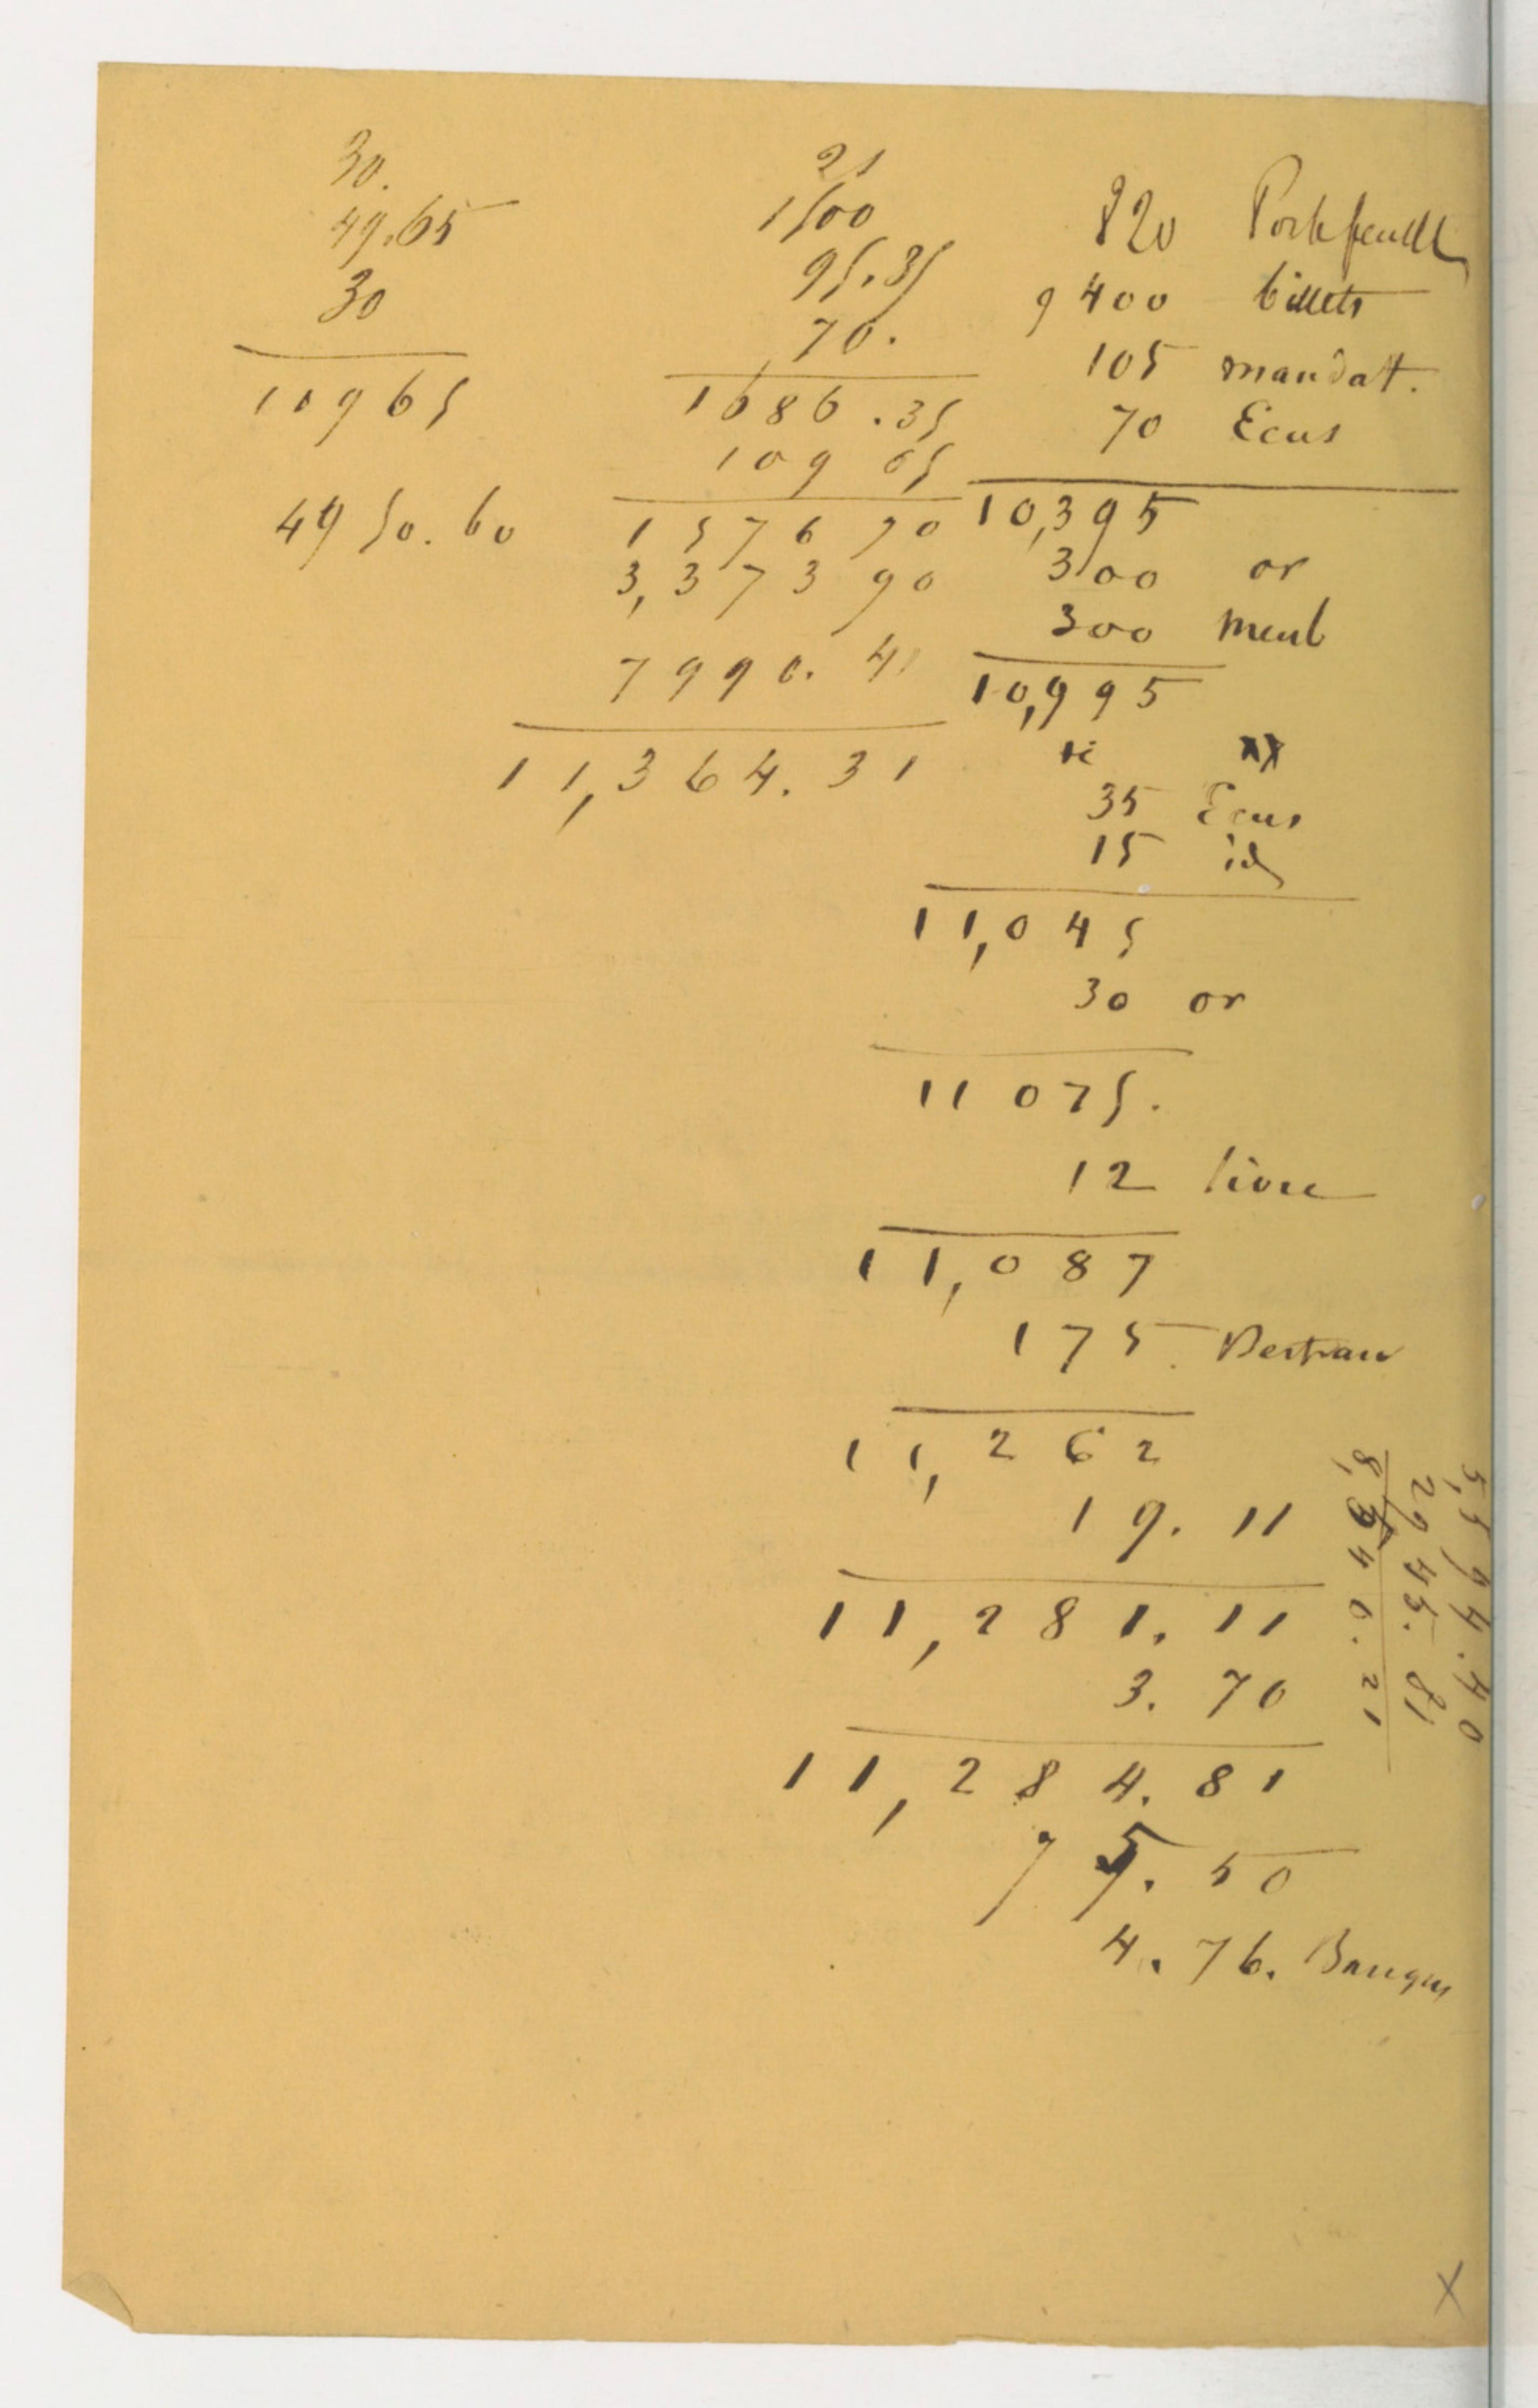 30.
49.65
30
109 65
49 50. 60
21
1500
95.35
70.
1686.35
109 65
1576 70
3,373 90
7990. 41
11,364. 31
820 Portefeuille
9400 billets
105 mandat.
70 Ecus
10,395
300 or
300 meub
10,995
35 Ecus
15 id
11,045
30 or
11 075.
12 livre
11,087
175
11,262
19. 11
11,281. 11
3. 70
11,284. 81
75. 50
4. 76. Banque
5,594.40
2945. 81
8,540. 21
X